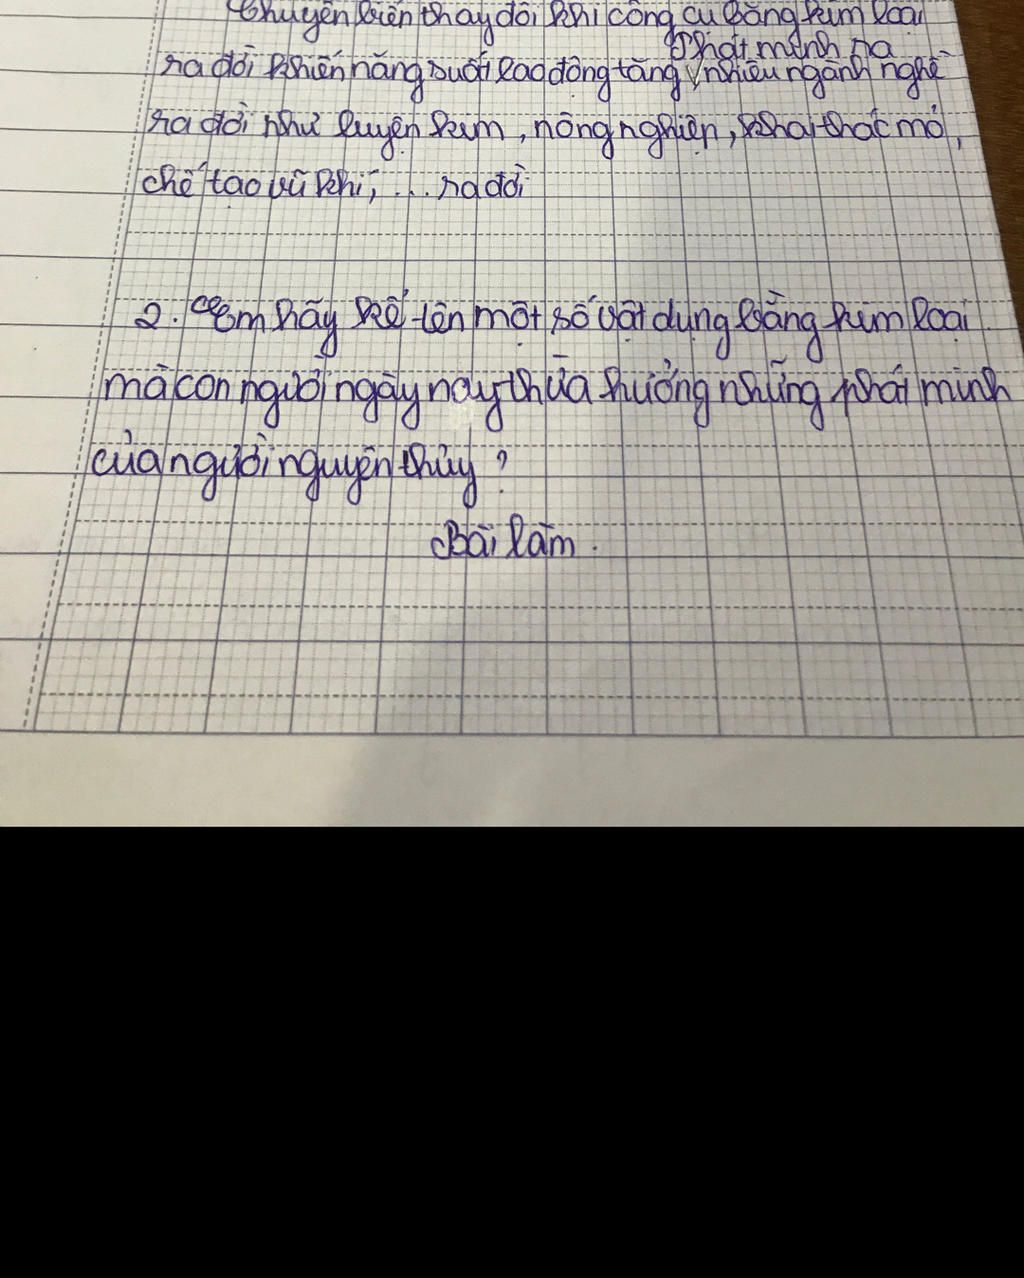 Chuyên biến thay đổi khi công cụ bằng kim loại
Phát minh ra
ra đời khiến năng suất lao động tăng √ nhiều ngành nghề
ra đời như luyện kim, nông nghiệp, khai thác mỏ,
chế tạo vũ khí, ... ra đời
2. Em hãy kể tên một số vật dụng bằng kim loại
mà con người ngày nay thừa hưởng những phát minh
của người nguyên thủy?
Bài làm.